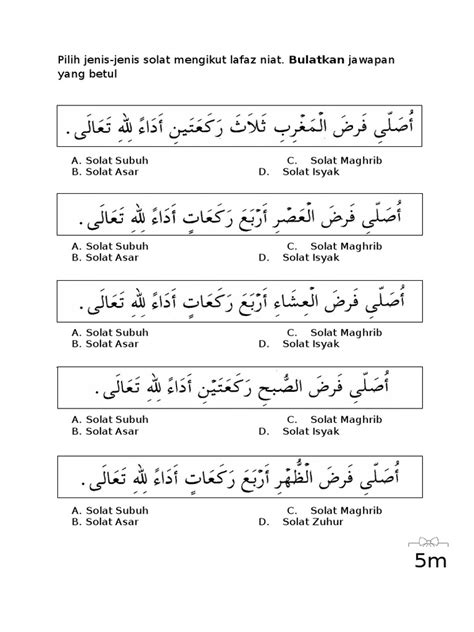 Pilih jenis-jenis solat mengikut lafaz niat. Bulatkan jawapan
yang betul
أُصَلِّي فَرضَ الْمَغْرِبِ ثَلاَثَ رَكَعَتَينِ أَدَاءً لِلهِ تَعَالَى .
A. Solat Subuh C. Solat Maghrib
B. Solat Asar D. Solat Isyak
أُصَلِّي فَرضَ الْعَصْرِ أَرْبَعَ رَكَعَاتٍ أَدَاءً لِلهِ تَعَالَى .
A. Solat Subuh C. Solat Maghrib
B. Solat Asar D. Solat Isyak
أُصَلِّي فَرضَ الْعِشَاءِ أَرْبَعَ رَكَعَاتٍ أَدَاءً لِلهِ تَعَالَى .
A. Solat Subuh C. Solat Maghrib
B. Solat Asar D. Solat Isyak
أُصَلِّي فَرضَ الصُّبحِ رَكَعَتَيْنِ أَدَاءً لِلهِ تَعَالَى .
A. Solat Subuh C. Solat Maghrib
B. Solat Asar D. Solat Isyak
أُصَلِّي فَرضَ الْظُّهْرِ أَرْبَعَ رَكَعَاتٍ أَدَاءً لِلهِ تَعَالَى .
A. Solat Subuh C. Solat Maghrib
B. Solat Asar D. Solat Zuhur
5m